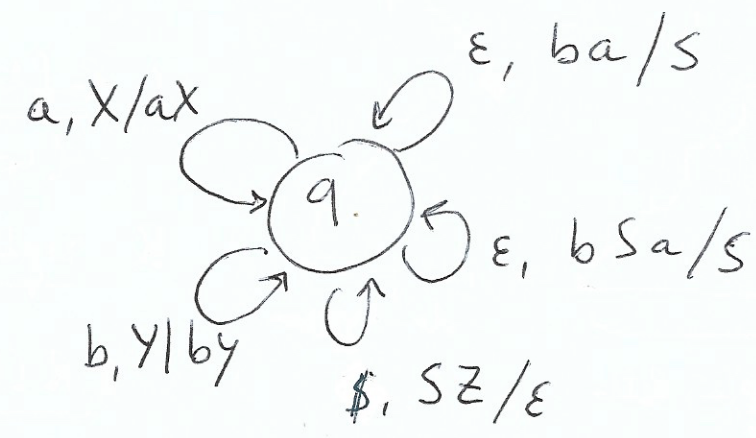 ε, ba/S
a, X/aX
q
ε, bSa/S
b, Y/by
$, SZ/ε